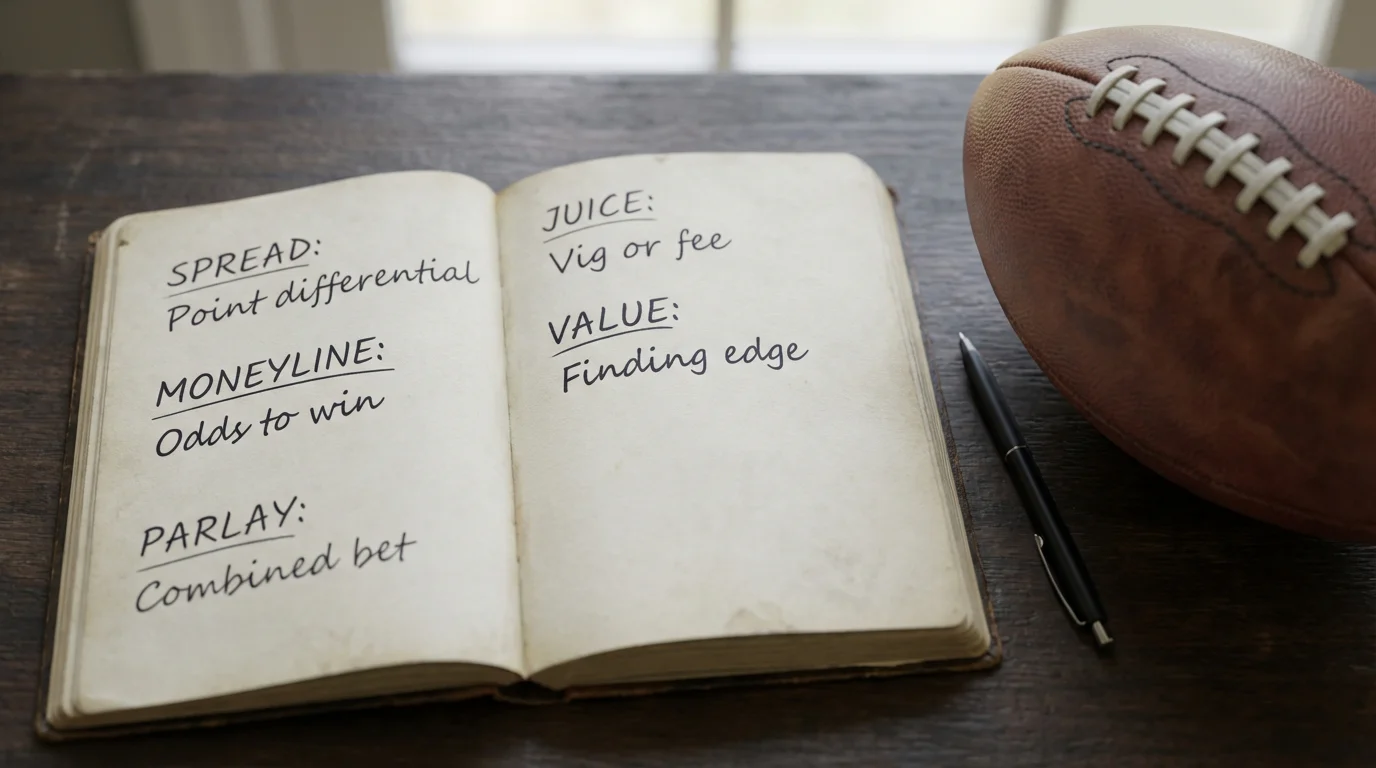 SPREAD:
Point differential
MONEYLINE:
Odds to win
PARLAY:
Combined bet
JUICE:
Vig or fee
VALUE:
Finding edge